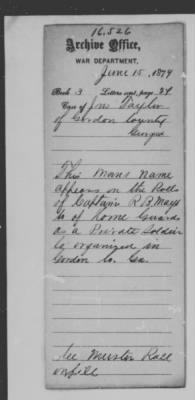 16,526
Archive Office,
WAR DEPARTMENT,
June 15, 1879
Book 3 Letters sent, page 24
Case of Jno Taylor
of Gordon County
Georgia
This Mans Name
appears on the Rolls
of Captain R B Mays
Co of Home Guards
as a Private Soldier
Co organized in
Gordon Co. Ga.
See Muster Roll
on file